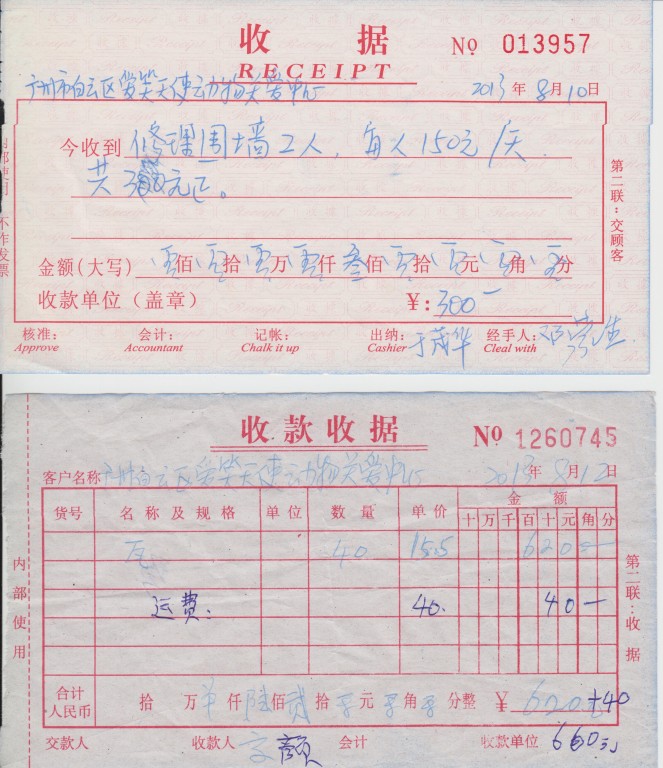 收 据 № 013957
RECEIPT
广州市白云区爱笑天使动物关爱中心 2013 年 8 月 10 日
今收到 修理围墙工人，每人150元/天
共 300元正。
金额(大写) 零佰零拾零万零仟叁佰零拾零元零角零分
收款单位（盖章） ¥:300一
核准: 会计: 记帐: 出纳: 于茂华 经手人:
Approve Accountant Chalk it up Cashier Cleal with
第二联:交顾客
内部使用 不作发票
收款收据 № 1260745
客户名称 广州白云区爱笑天使动物关爱中心 2013 年 8 月 12 日
货号 名称及规格 单位 数量 单价 金额
十 万 千 百 十 元 角 分
瓦 40 15.5 620一
运费: 40. 40一
合计人民币 拾 万 仟 陆佰贰拾零元零角零分整 ¥ 620+40
交款人 收款人 会计 收款单位 660元
内部使用
第二联:收据